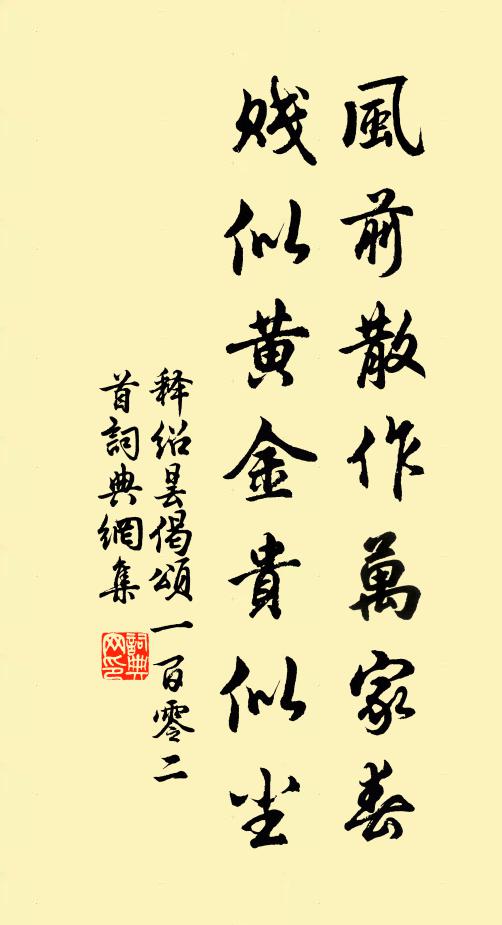 風前散作萬家春
賤似黄金貴似尘
释紹曇偈頌一百零二
首詞典網集
詞典
网印